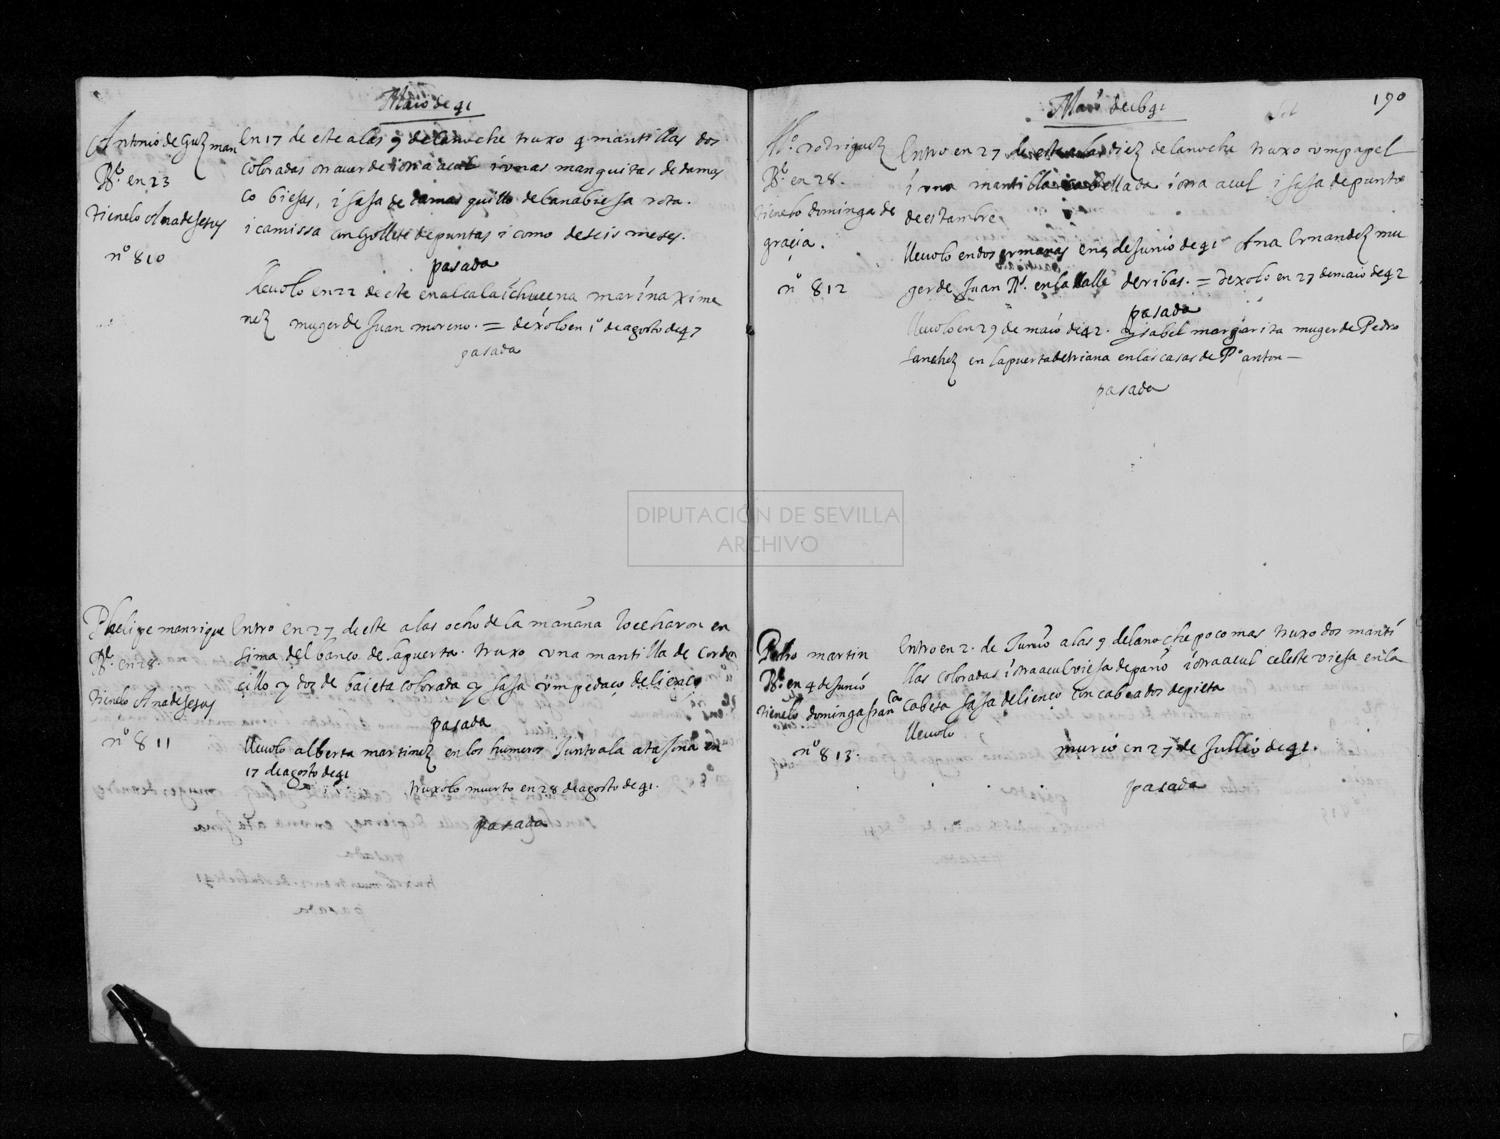 Maio de 91
Antonio de Guzman
Bº. en 23
tienelo Ana de Jesus
nº 810
En 17 de este a las 9 de la noche truxo 4 mantillas dos
coloradas otra uerde i otra acul i unas manguitas de damas
co biejas, i faja de damasquillo de lana biesa rota.
i camissa con gollete de puntas i como de seis meses.
pasada
lleuolo en 22 de este en alcala i chucena marina xime
nez muger de Juan moreno. = dexolo en 1º de agosto de 47
pasada
Phelipe manrique
Bº. en 28.
tienelo Ana de Jesus
nº 811
Entro en 27 de este a las ocho de la mañana lo echaron en
sima del banco de la puerta. truxo una mantilla de cordon
cillo y dos de baieta colorada y faja un pedaço de lienço
pasada
lleuolo alberta martinez en los humeros Junto a la atajona en
17 de agosto de 91
truxolo muerto en 28 de agosto de 91.
pasada
Maio de 1691
190
Alº. rodriguez
Bº. en 28.
tienelo dominga de
graçia.
nº 812
Entro en 27 de este a las diez de la noche truxo un papel
i una mantilla i otra acul i faja de punto
de estambre
lleuolo en dos ermanas en 5 de Junio de 91 Ana Ernandez mu
ger de Juan Rº. en la calle de ribas. = dexolo en 27 de maio de 92
pasada
lleuolo en 29 de maio de 92. ysabel margarita muger de Pedro
sanchez en la puerta de triana en las casas de Pº anton
pasada
Pedro martin
Bº. en 4 de Junio
tienelo dominga franca
nº 813.
Entro en 2. de Junio a las 9 de la noche poco mas truxo dos manti
llas coloradas i otra acul viesa de paño i otra acul celeste viesa en la
cabesa faja de lienço con cabeados de pieta
lleuolo
murio en 27 de Jullio de 91.
pasada
DIPUTACIÓN DE SEVILLA
ARCHIVO